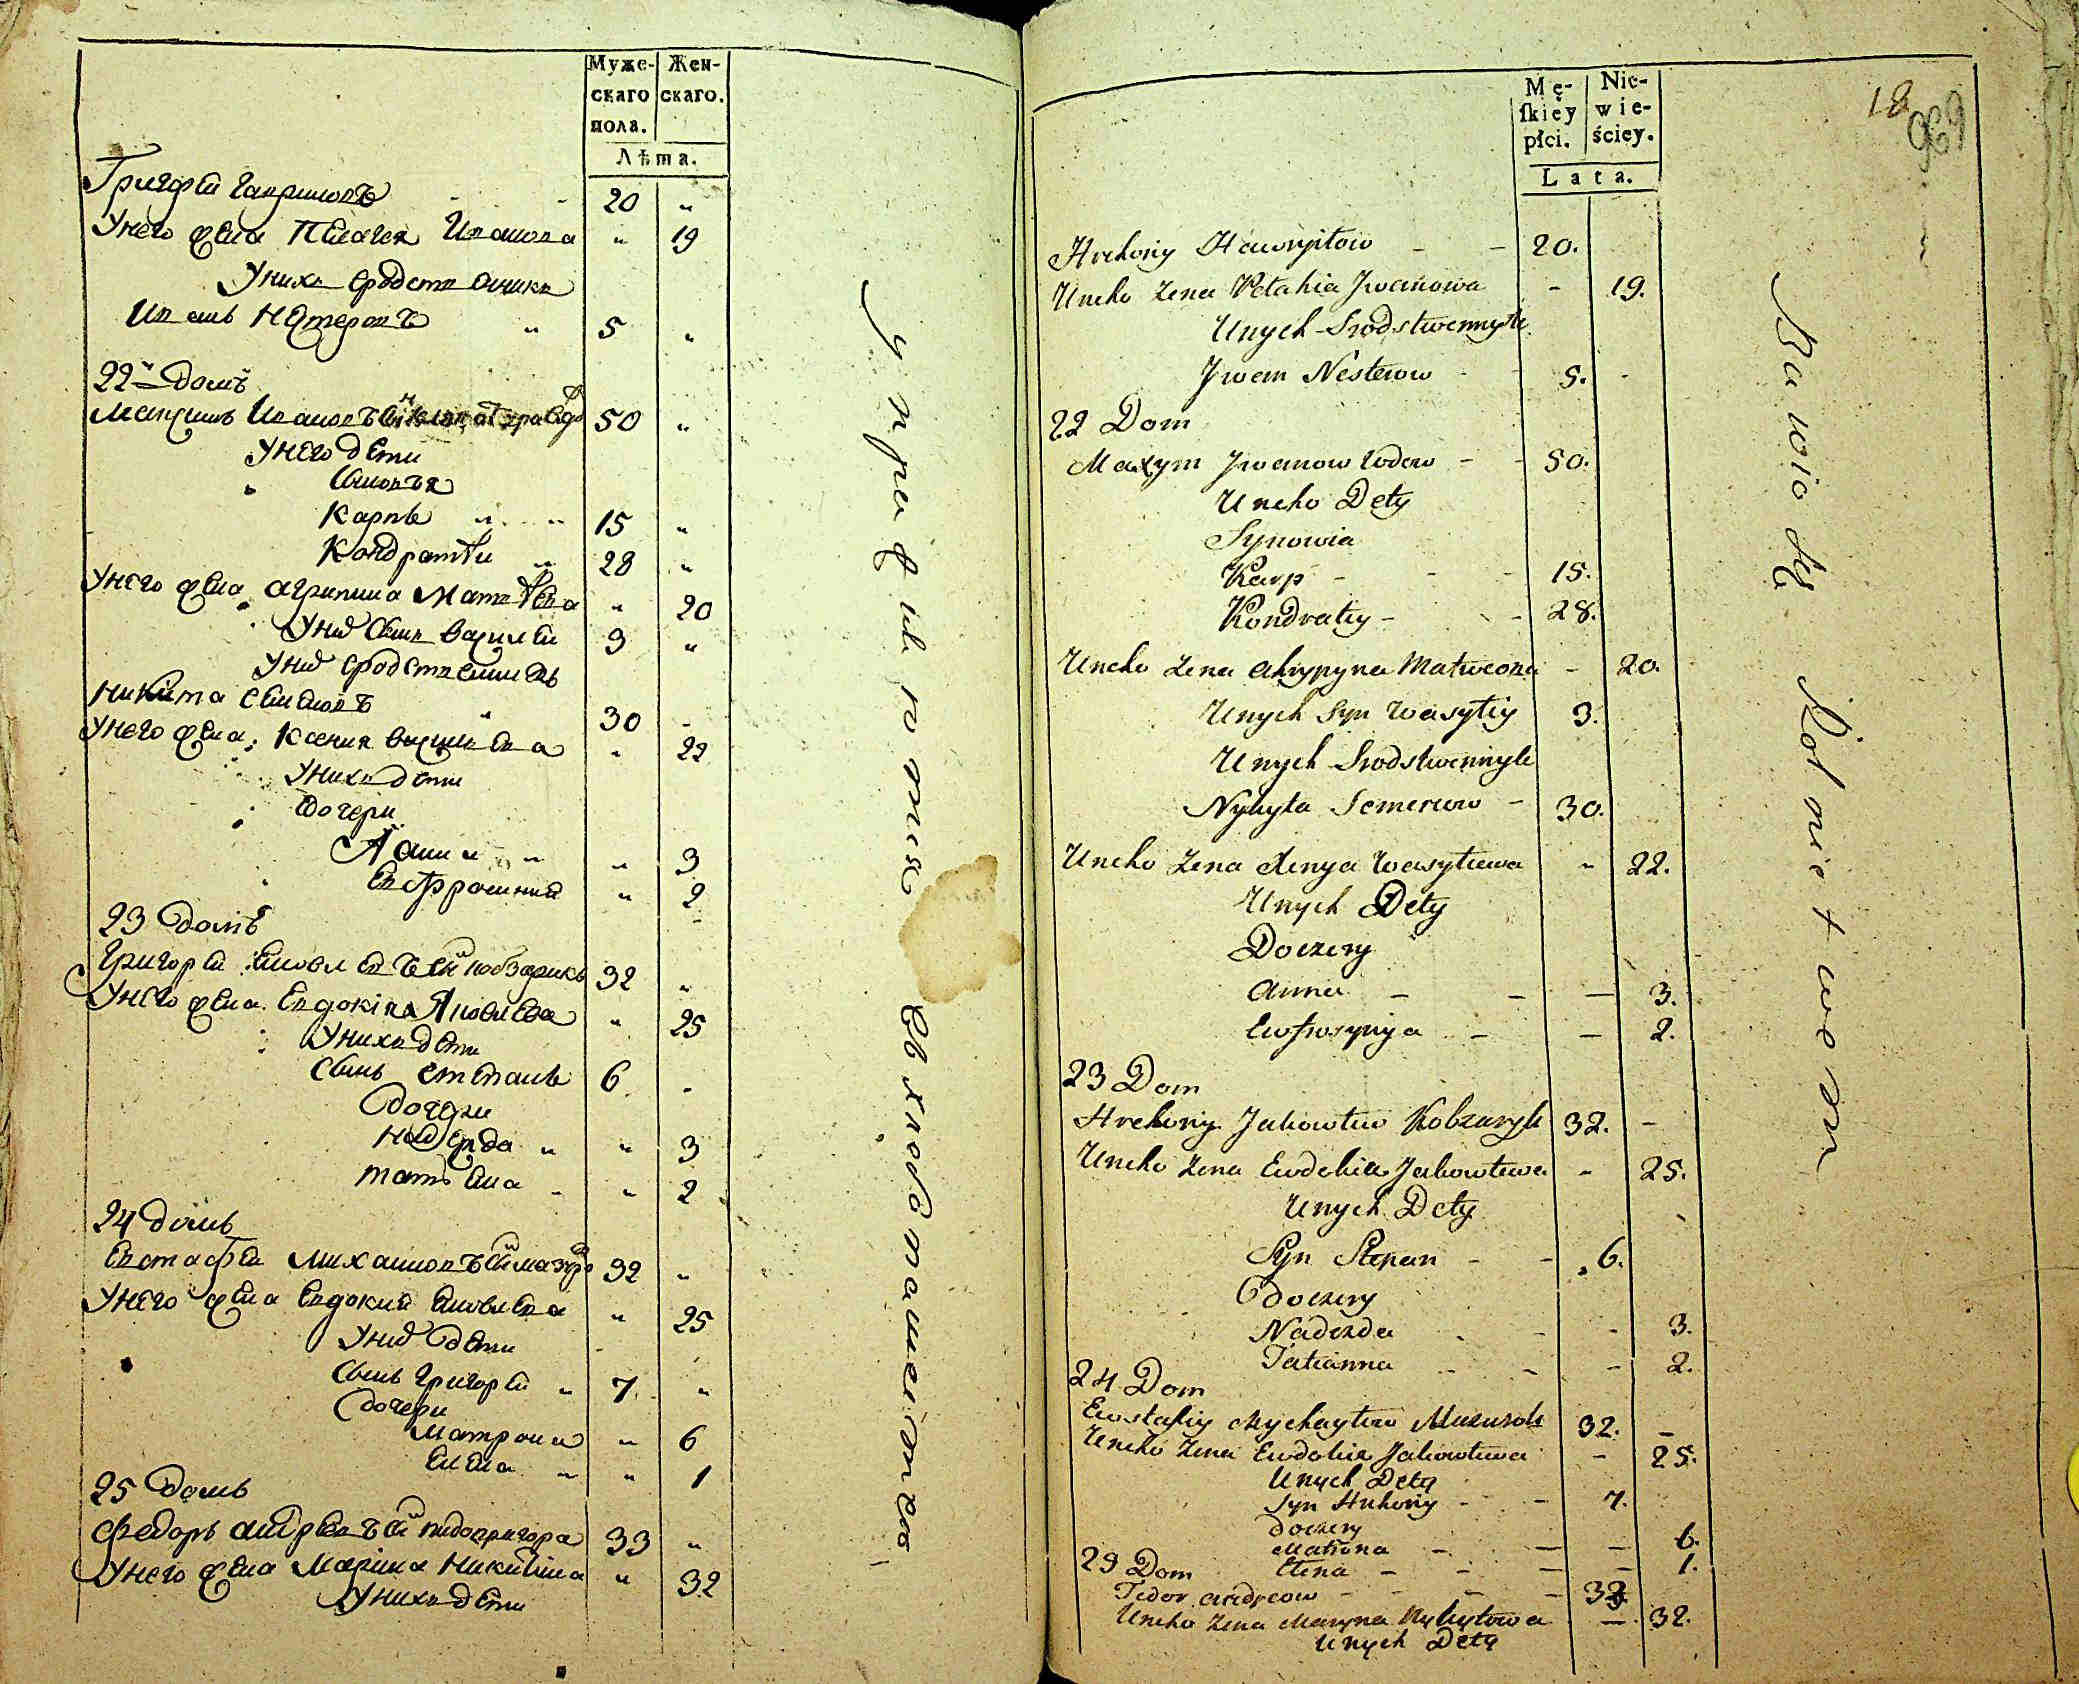 Муже-
скаго
пола.
Жен-
скаго.
Лѣта.
Григорій Гаврилов 20 „
У него жена Пелагея Иванова „ 19
У них сродственник
Иван Нестеров „ 5 „
22й Домъ
Максим Иванов 50 „
У него дети
Сыновья
Карпъ „ „ 15 „
Кондратій „ 28 „
У него жена Агрипина Матвѣева „ 20
У них сын Василей 3 „
У них сродственникъ
Никита Семенов „ 30 „
У него жена Ксения Василиева „ 22
У них дети
Дочери
Анни „ „ 3
Евфросиния „ 2
23 Домъ
Григорій Яковлевъ Кобзарикъ 32 „
У него жена Евдокія Яковлева „ 25
У них дети
Сынъ Степанъ 6 „
Дочери
Надежда „ „ 3
Татьяна „ 2
24 Домъ
Евстафей Михайловъ 32 „
У него жена Евдокия Яковлева „ 25
У них дети
Сынъ Григорій „ 7 „
Дочери
Матрона „ 6
Елена „ „ 1
25 Домъ
Федоръ Андреевъ Пидопригора 33 „
У него жена Марина Никитина „ 32
У них дети
Mę-
skiéy
płci.
Nie-
wie-
ściey.
Lata.
18
Hrehory Hawryłow – – 20.
Uneho Zena Pelahia Jwanowa – 19.
Unych Srodstwennyk
Jwan Nesterow – 5. –
22 Dom
Maxym Jwanow – – 50.
Uneho Dety
Synowia
Karp – – – 15.
Kondratiy – – – 28.
Uneho Zena Ahrypyna Matweowa – 20.
Unych Syn Wasyliy 3.
Unych Srodstwennyk
Nykyta Semenow – 30.
Uneho Zena Xenya Wasylewa „ 22.
Unych Dety
Doczery
Anna – – – 3.
Ewfrosynya – – 2.
23 Dom
Hrehory Jakowlew Kobzaryk 32. –
Uneho Zena Ewdokia Jakowlewa – 25.
Unych Dety
Syn Stepan – – 6.
Doczery
Nadezda – – – 3.
Tatianna – – – 2.
24 Dom
Ewstafiy Mychayłow Mazurok 32. –
Uneho Zena Ewdokia Jakowlewa – 25.
Unych Dety
Syn Hrehory – – 7.
Doczery
Matrona – – – 6.
25 Dom Elena – – – – 1.
Fedor Andreow – – – – 33
Uneho Zena Maryna Nykytowa – 32.
Unych Dety
Bawią się Rolnictwem